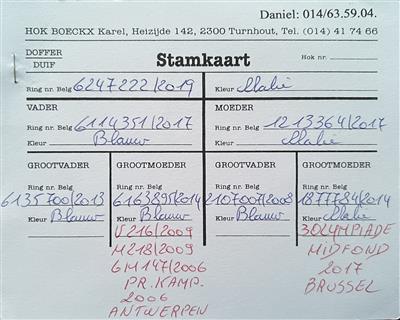 Daniel: 014/63.59.04.
HOK BOECKX Karel, Heizijde 142, 2300 Turnhout, Tel. (014) 41 74 66
DOFFER
DUIF
Stamkaart
Hok nr.
Ring nr. Belg 6247222/2019
Kleur Malie
VADER
Ring nr. Belg 6114351/2017
Kleur Blauw
MOEDER
Ring nr. Belg 1213364/2017
Kleur Malie
GROOTVADER
Ring nr. Belg
6135700/2013
Kleur Blauw
GROOTMOEDER
Ring nr. Belg
6163895/2014
Kleur Blauw
V216/2009
M218/2009
GM147/2006
PR. KAMP.
2006
ANTWERPEN
GROOTVADER
Ring nr. Belg
2107007/2008
Kleur Blauw
GROOTMOEDER
Ring nr. Belg
1877784/2014
Kleur Malie
3OLYMPIADE
MIDFOND
2017
BRUSSEL